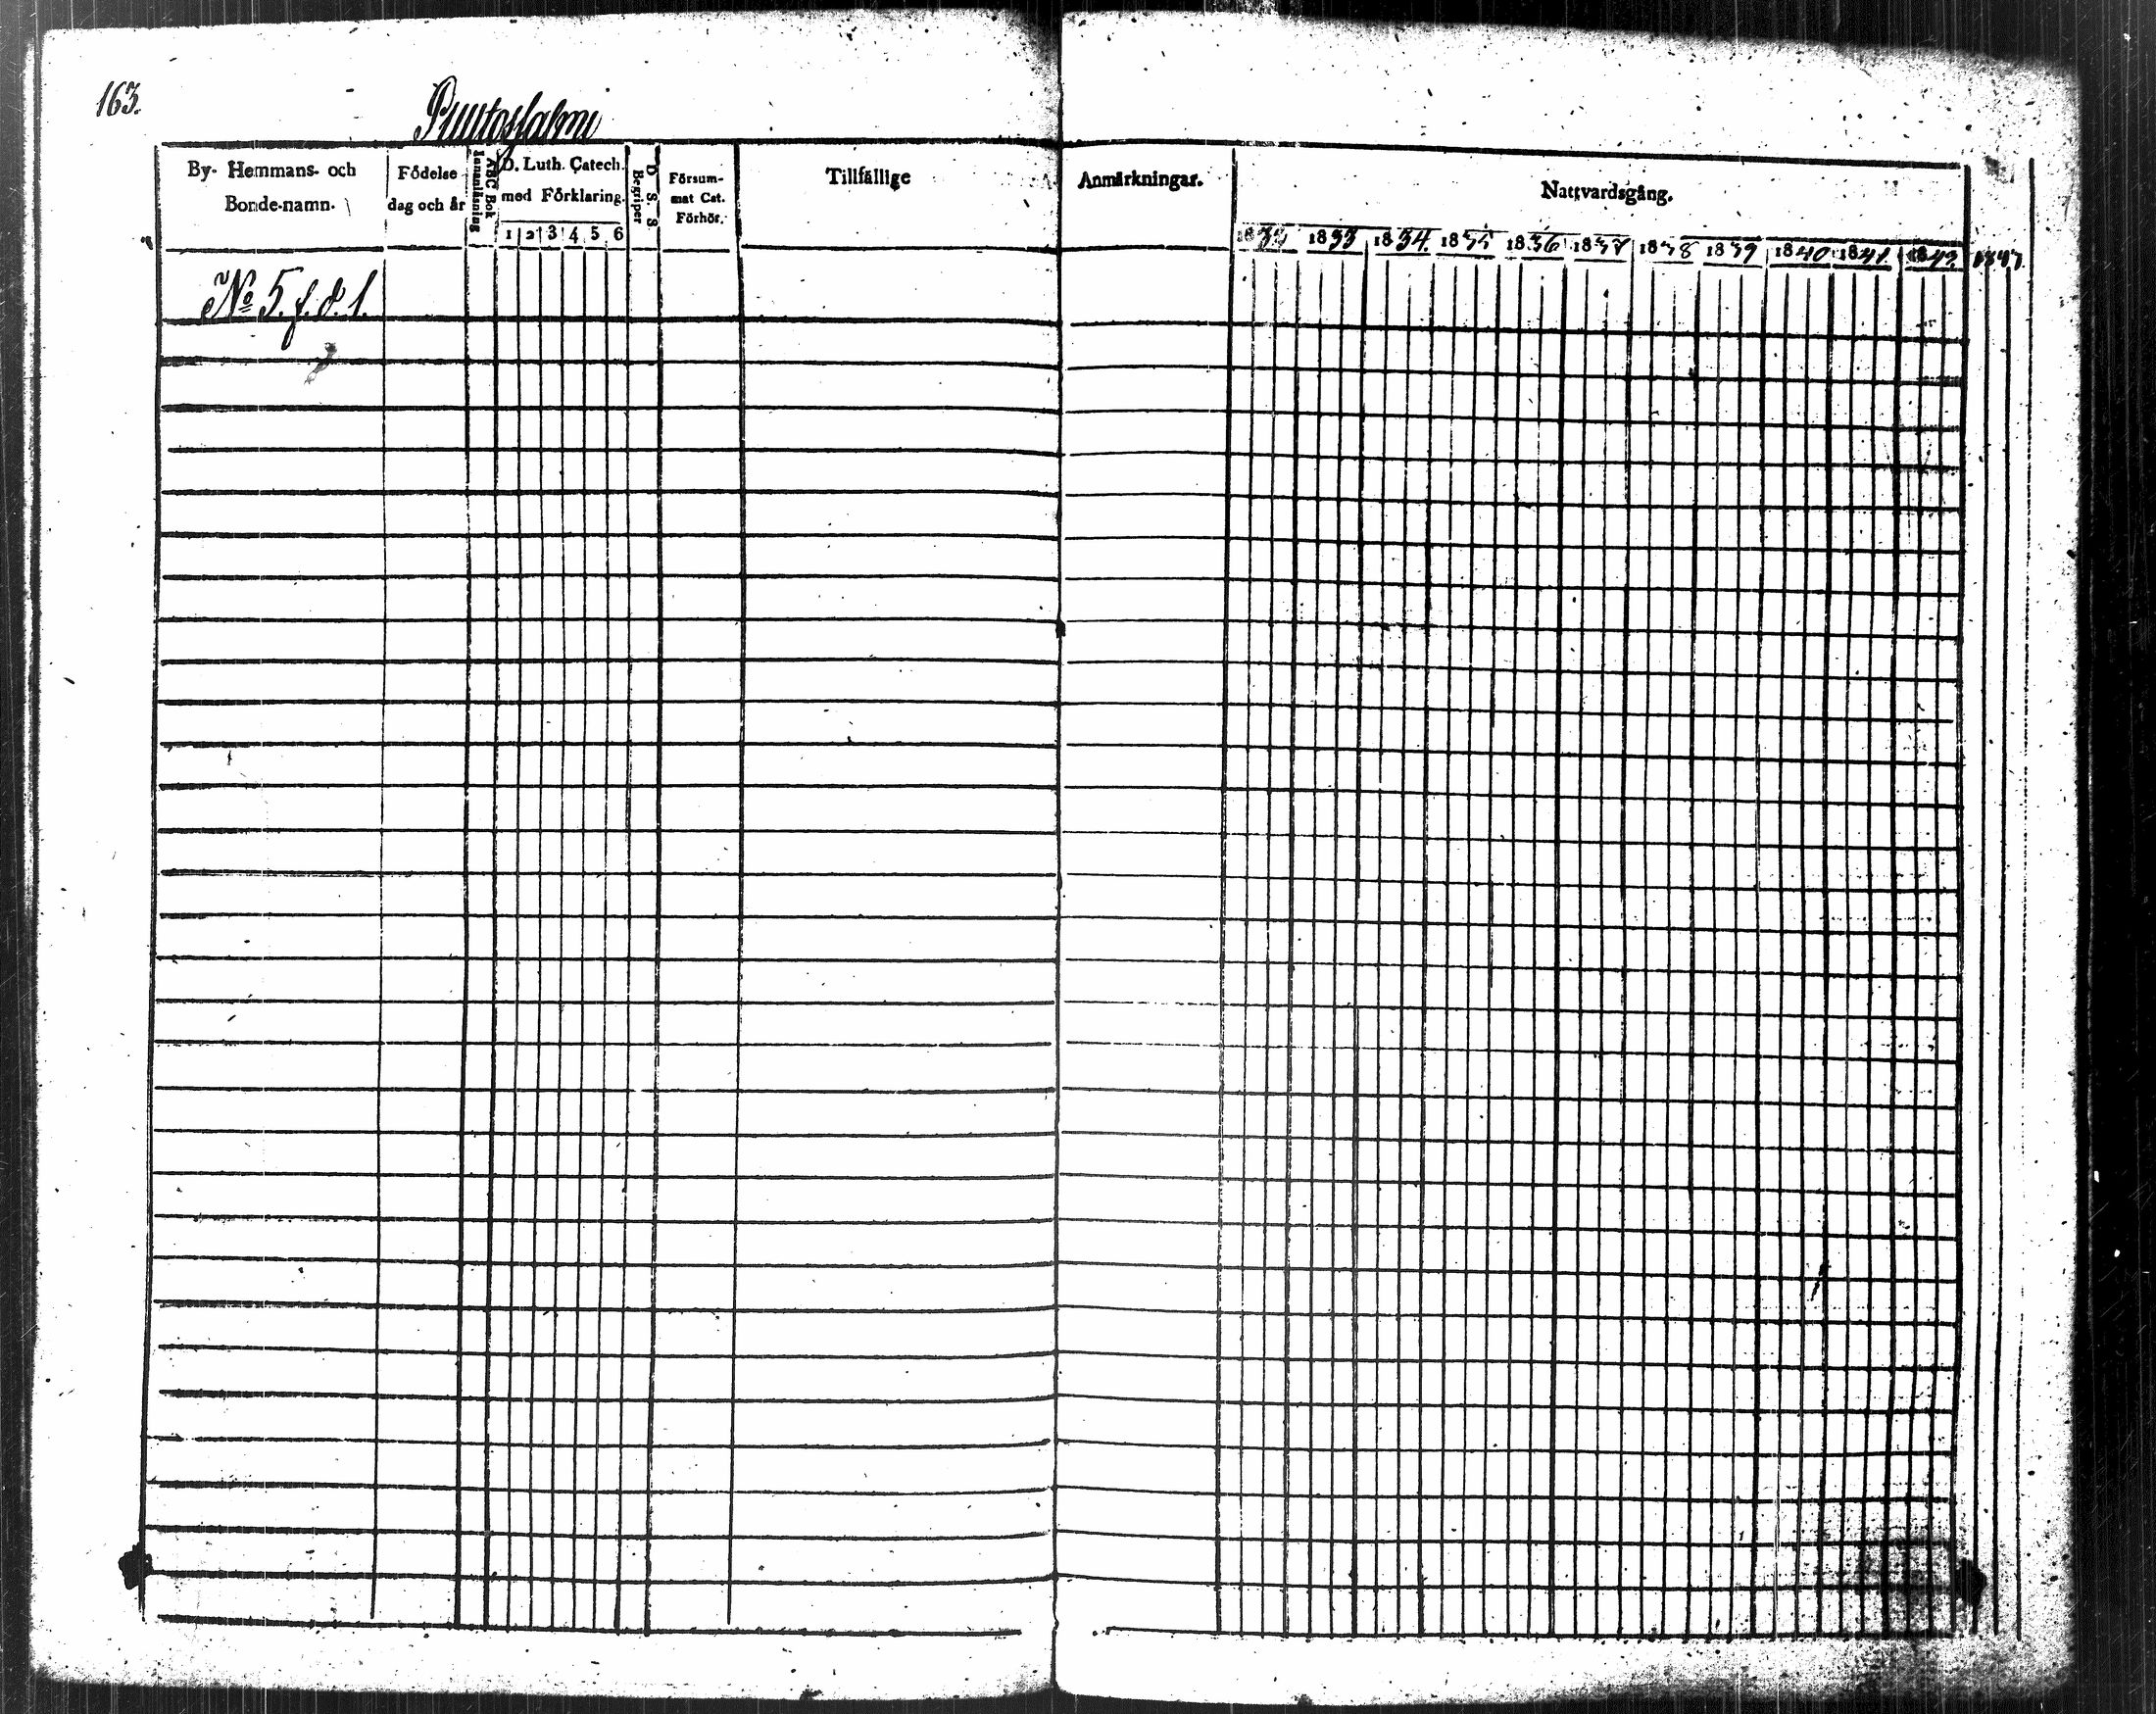 163.
Puutossalmi
By- Hemmans- och
Bonde-namn.
Födelse
dag och år
ABC Bok
Innanläsning
D. Luth. Catech.
med Förklaring.
1 2 3 4 5 6
D. S. S
Begriper
Försum-
mat Cat.
Förhör.
Tillfällige
Anmärkningar.
Nattvardsgång.
1832 1833 1834. 1835 1836 1837 1838 1839 1840 1841 1842 1843
No 5. f. d. 1.